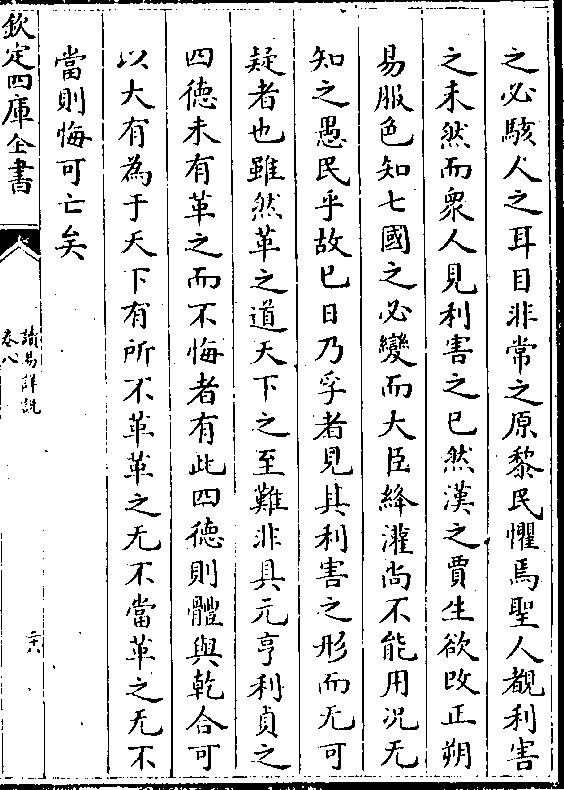 之必駭人之耳目非常之原黎民懼焉聖人覩利害
之未然而衆人見利害之已然漢之賈生欲改正朔
易服色知七國之必變而大臣絳灌尚不能用况无
知之愚民乎故已日乃孚者見其利害之形而无可
疑者也雖然革之道天下之至難非具元亨利貞之
四德未有革之而不悔者有此四德則體與乾合可
以大有為于天下有所不革革之无不當革之无不
當則悔可亡矣
欽定四庫全書
讀易詳説
卷八
二十八